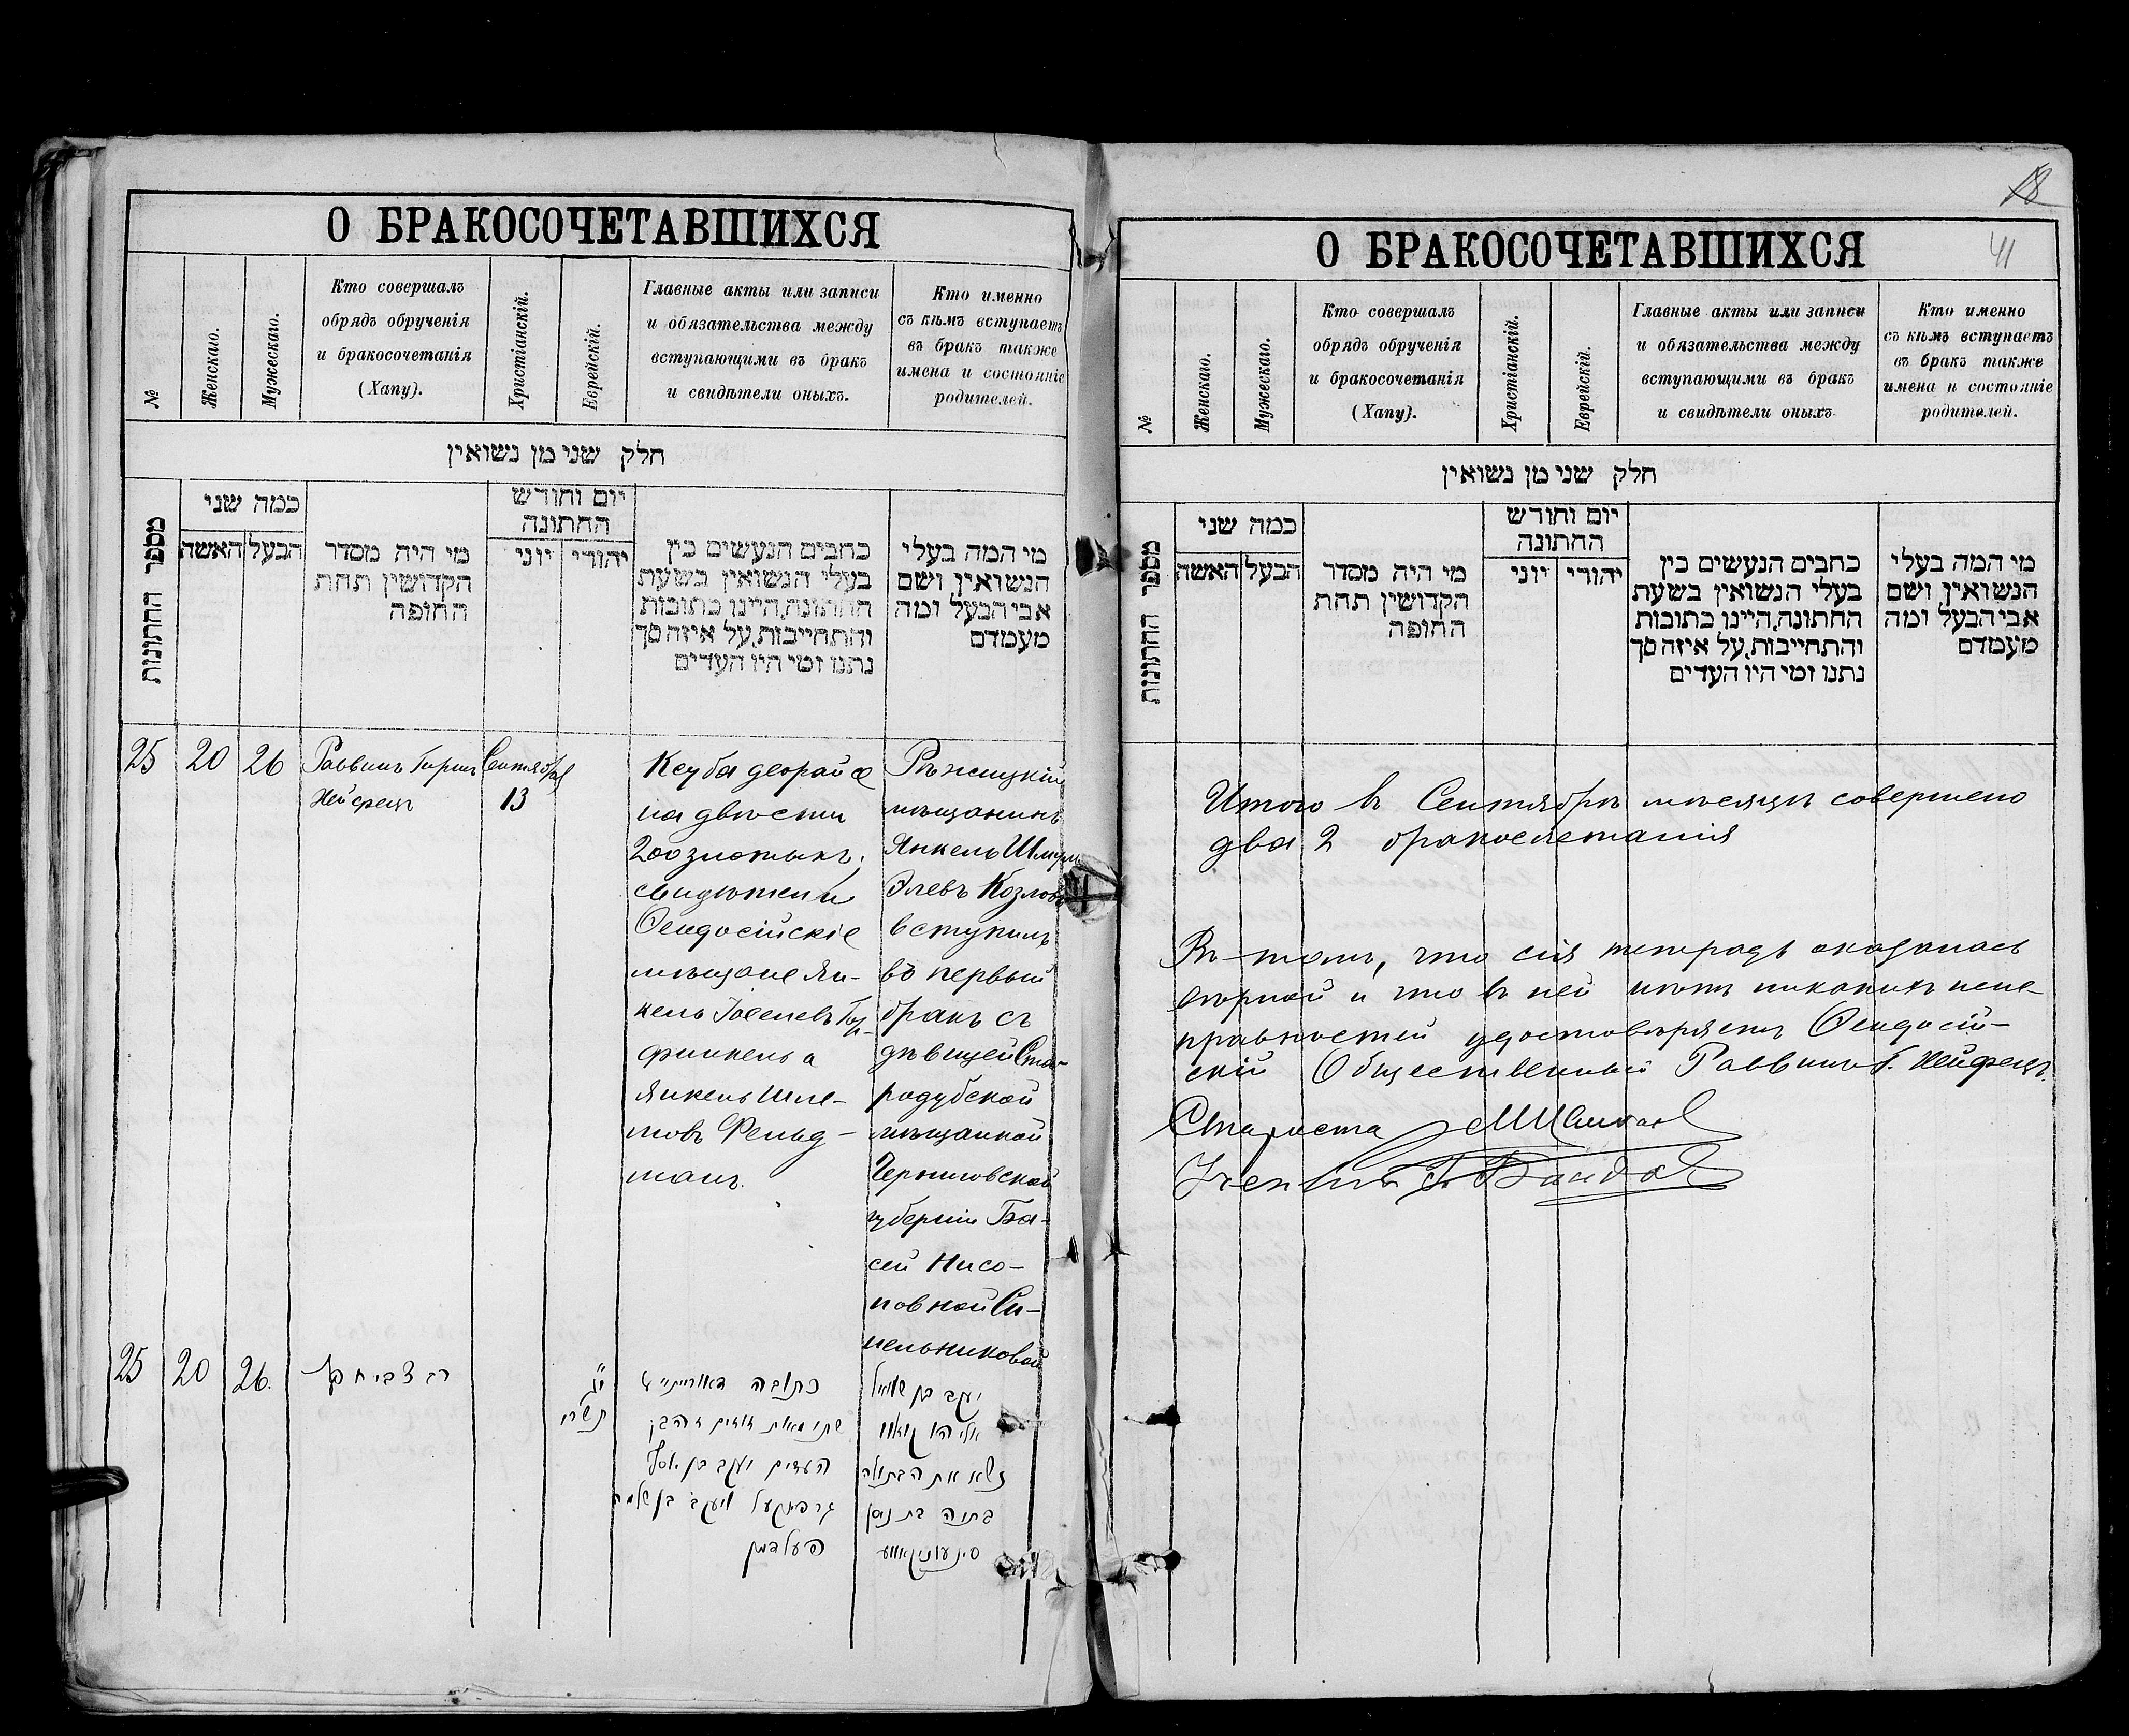 О БРАКОСОЧЕТАВШИХСЯ
№
Женскаго.
Мужескаго.
Кто совершалъ
обрядъ обрученія
и бракосочетанія
(Хапу).
Христіанскій.
Еврейскій.
Главные акты или записи
и обязательства между
вступающими въ бракъ
и свидѣтели оныхъ.
Кто именно
съ кѣмъ вступаетъ
въ бракъ также
имена и состояніе
родителей.
חלק שני מן נשואין
מספר החתונות
כמה שני
האשה
הבעל
מי היה מסדר
הקדושין תחת
החופה
יום וחורש
החתונה
יוני
יהודי
כתבים הנעשים בין
בעלי הנשואין בשעת
החתונה,היינו כתובות
והתחייבות,על איזה סך
נתנו ומי היו העדים
מי המה בעלי
הנשואין ושם
אבי הבעל ומה
מעמדם
25
20
26
Раввинъ Гирш
Хейфецъ
Сентября
13
Кеуба деорайсе
на двѣсти
200 злотыхъ.
свидѣтели
Ѳеодосійскіе
мѣщане Ян-
кель Іоселевъ Гор-
финкель а
Янкель Шле-
мовъ Фельд-
манъ.
Рѣжицкій
мѣщанинъ
Янкель Шмуль
Элевъ Козловъ
вступилъ
въ первый
бракъ съ
дѣвицей Ста-
родубской
мѣщанкой
Черниговской
губерніи Ба-
сей Нисо-
новной Си-
нельниковой
25
20
26.
רב צבי חפץ
יג
תשרי
כתובה דאורייתא
שתי מאות זוזים
העדים יעקב בן יוסף
ויעקב בן שלמה
פעלדמן
יעקב בן שמואל
אליהו
נשא את הבתולה
בתיה בת ניסן
О БРАКОСОЧЕТАВШИХСЯ
18
41
№
Женскаго.
Мужескаго.
Кто совершалъ
обрядъ обрученія
и бракосочетанія
(Хапу).
Христіанскій.
Еврейскій.
Главные акты или записи
и обязательства между
вступающими въ бракъ
и свидѣтели оныхъ
Кто именно
съ кѣмъ вступаетъ
въ бракъ также
имена и состояніе
родителей.
חלק שני מן נשואין
מספר החתונות
כמה שני
האשה
הבעל
מי היה מסדר
הקדושין תחת
החופה
יום וחורש
החתונה
יוני
יהודי
כתבים הנעשים בין
בעלי הנשואין בשעת
החתונה,היינו כתובות
והתחייבות,על איזה סך
נתנו ומי היו העדים
מי המה בעלי
הנשואין ושם
אבי הבעל ומה
מעמדם
Итого въ Сентябрѣ мѣсяцѣ совершено
два 2 бракосочетанія
Въ томъ, что сія тетрадь оказалась
вѣрной и что въ ней нѣтъ никакихъ неис-
правностей удостовѣряетъ Ѳеодосій-
скій Общественный Раввинъ Г. Хейфецъ.
Староста